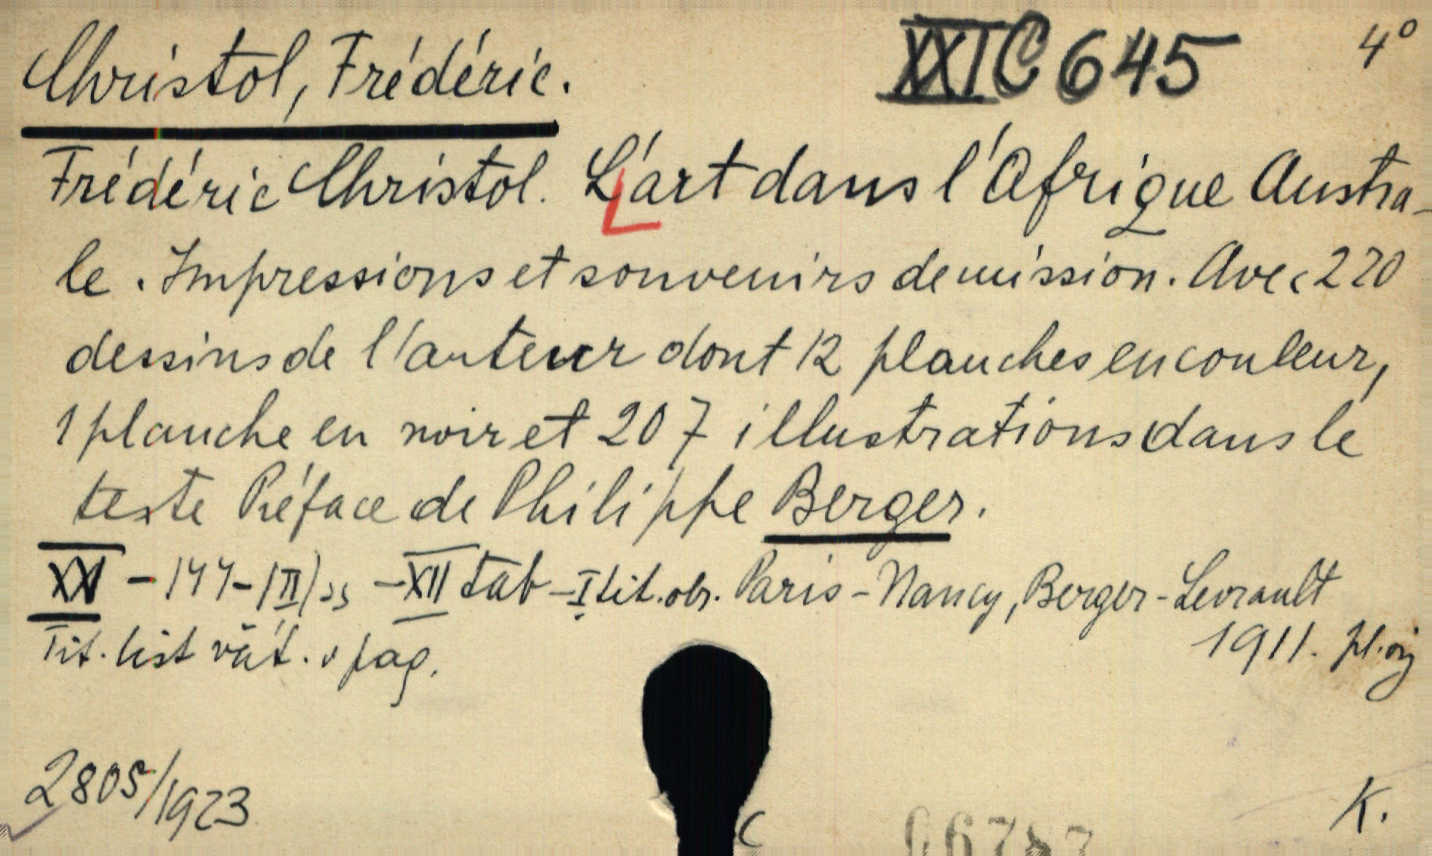 Christol, Frédéric. XXI C 645 4°
Frédéric Christol. L'art dans l'Afrique Austra-
le. Impressions et souvenirs de mission. Avec 220
dessins de l'auteur dont 12 planches en couleur,
1 planche en noir et 207 illustrations dans le
texte Préface de Philippe Berger.
XVI - 144 - (II) ss - XII tab - I tit. obr. Paris - Nancy, Berger-Levrault
Tit. list vaz. v pag. 1911.
2805/1923 K.
C 66787